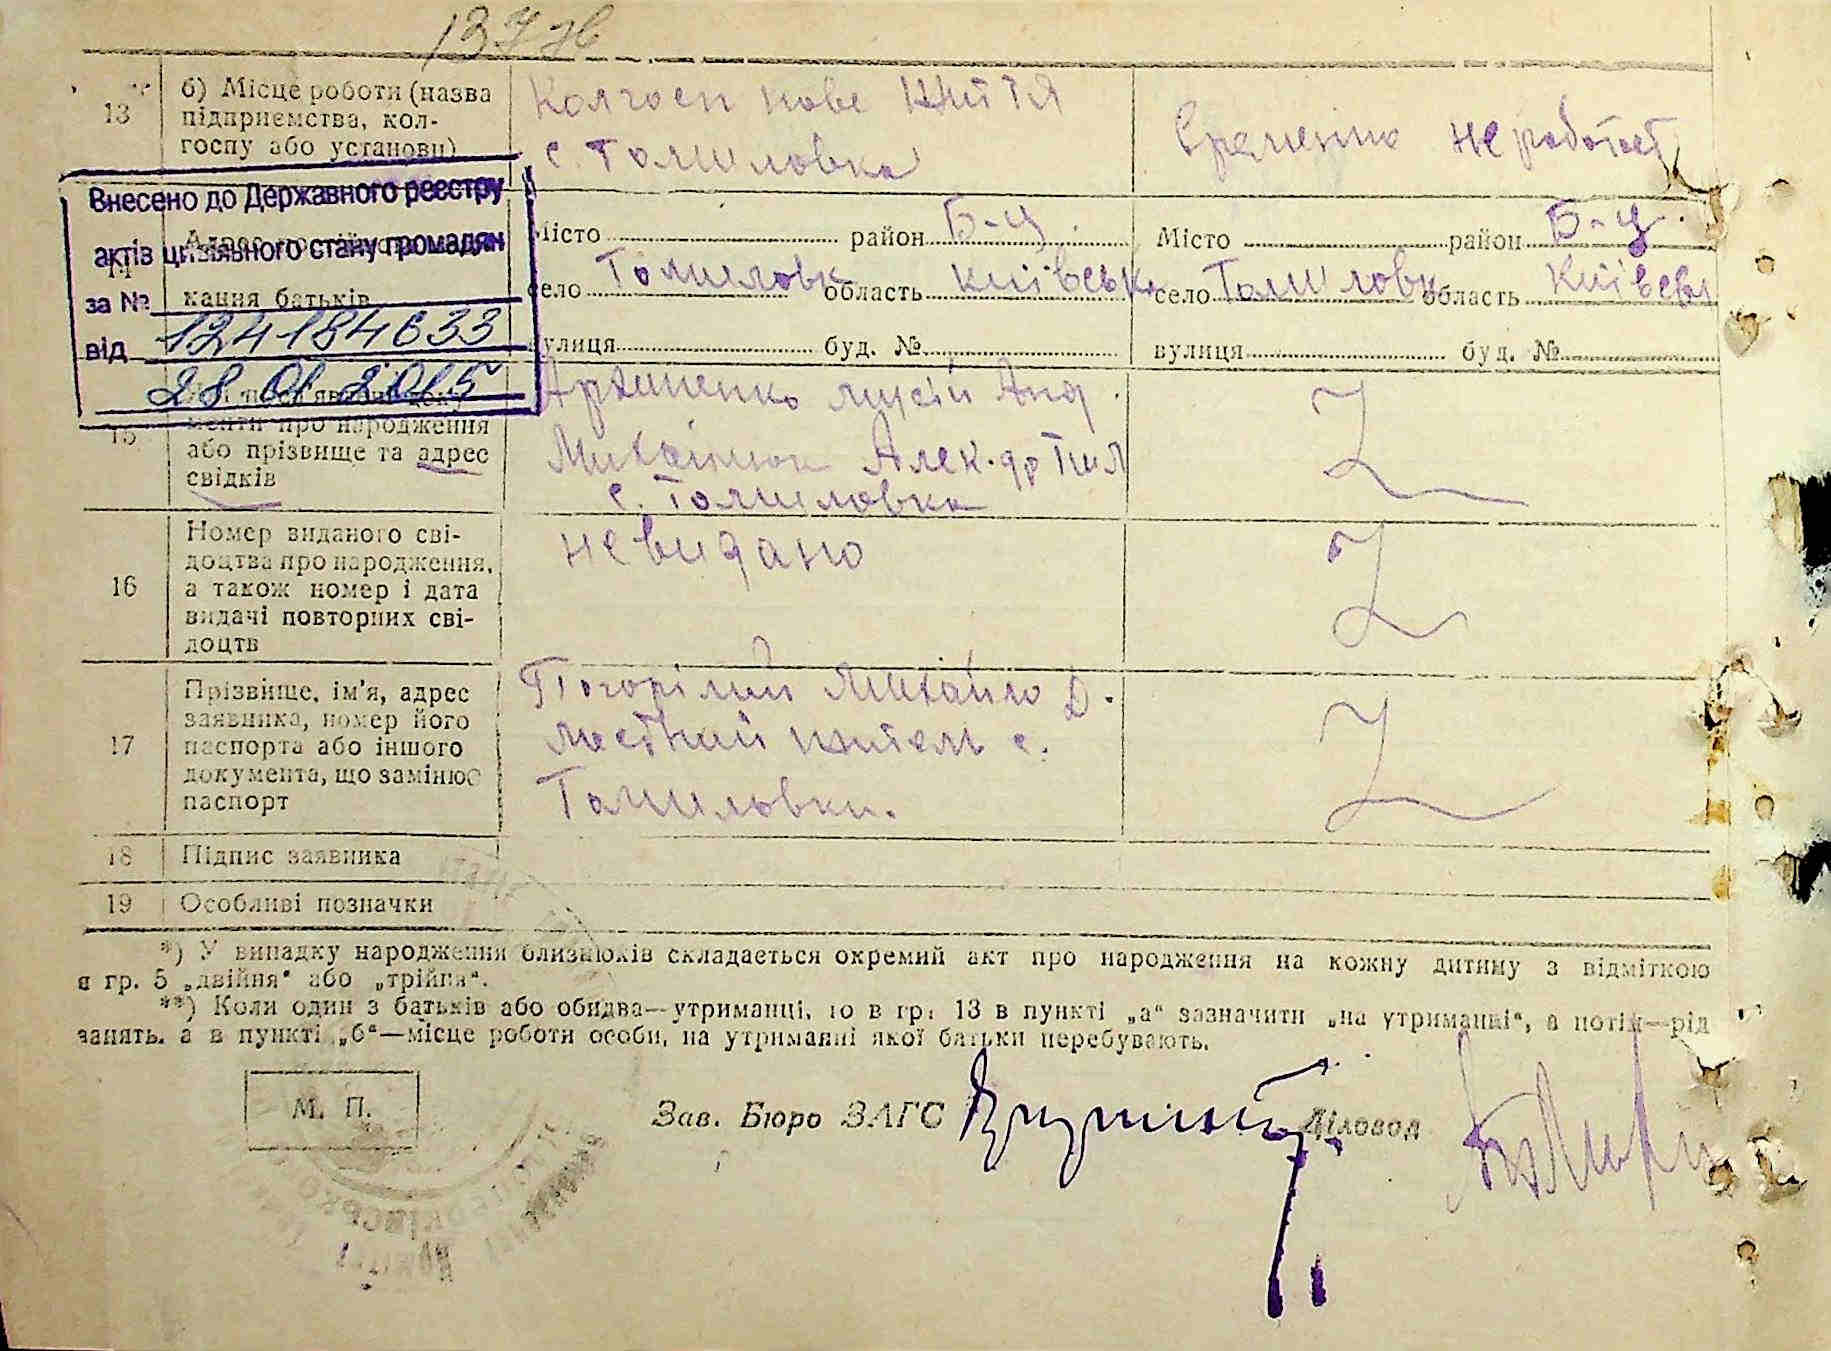 13
б) Місце роботи (назва
підприємства, кол-
госпу або установи)
Колгосп нове життя
с. Томиловка
Временно не работает
Внесено до Державного реєстру
актів цивільного стану громадян
за №
124184633
від
28 01 2015
кання батьків
місто район Б-Ц.
село Томиловк область київськ
вулиця буд. №
Місто район Б-Ц.
село Томиловк область Київськ
вулиця буд. №
15
менти про народження
або прізвище та адрес
свідків
Мусій Анд.
Алек-др
с. Томиловка
16
Номер виданого сві-
доцтва про народження,
а також номер і дата
видачі повторних сві-
доцтв
невидано
17
Прізвище, ім'я, адрес
заявника, номер його
паспорта або іншого
документа, що замінює
паспорт
Погорілий Михайло Д.
местний житель с.
Томиловки.
18
Підпис заявника
19
Особливі позначки
*) У випадку народження близнюків складається окремий акт про народження на кожну дитину з відміткою
в гр. 5 „двійня“ або „трійня“.
**) Коли один з батьків або обидва—утриманці, то в гр. 13 в пункті „а“ зазначити „на утриманні“, а потім—рід
занять, а в пункті „б“—місце роботи особи, на утриманні якої батьки перебувають.
М. П.
Зав. Бюро ЗАГС
Діловод